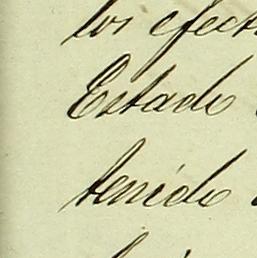 los efect
Estado
tenido